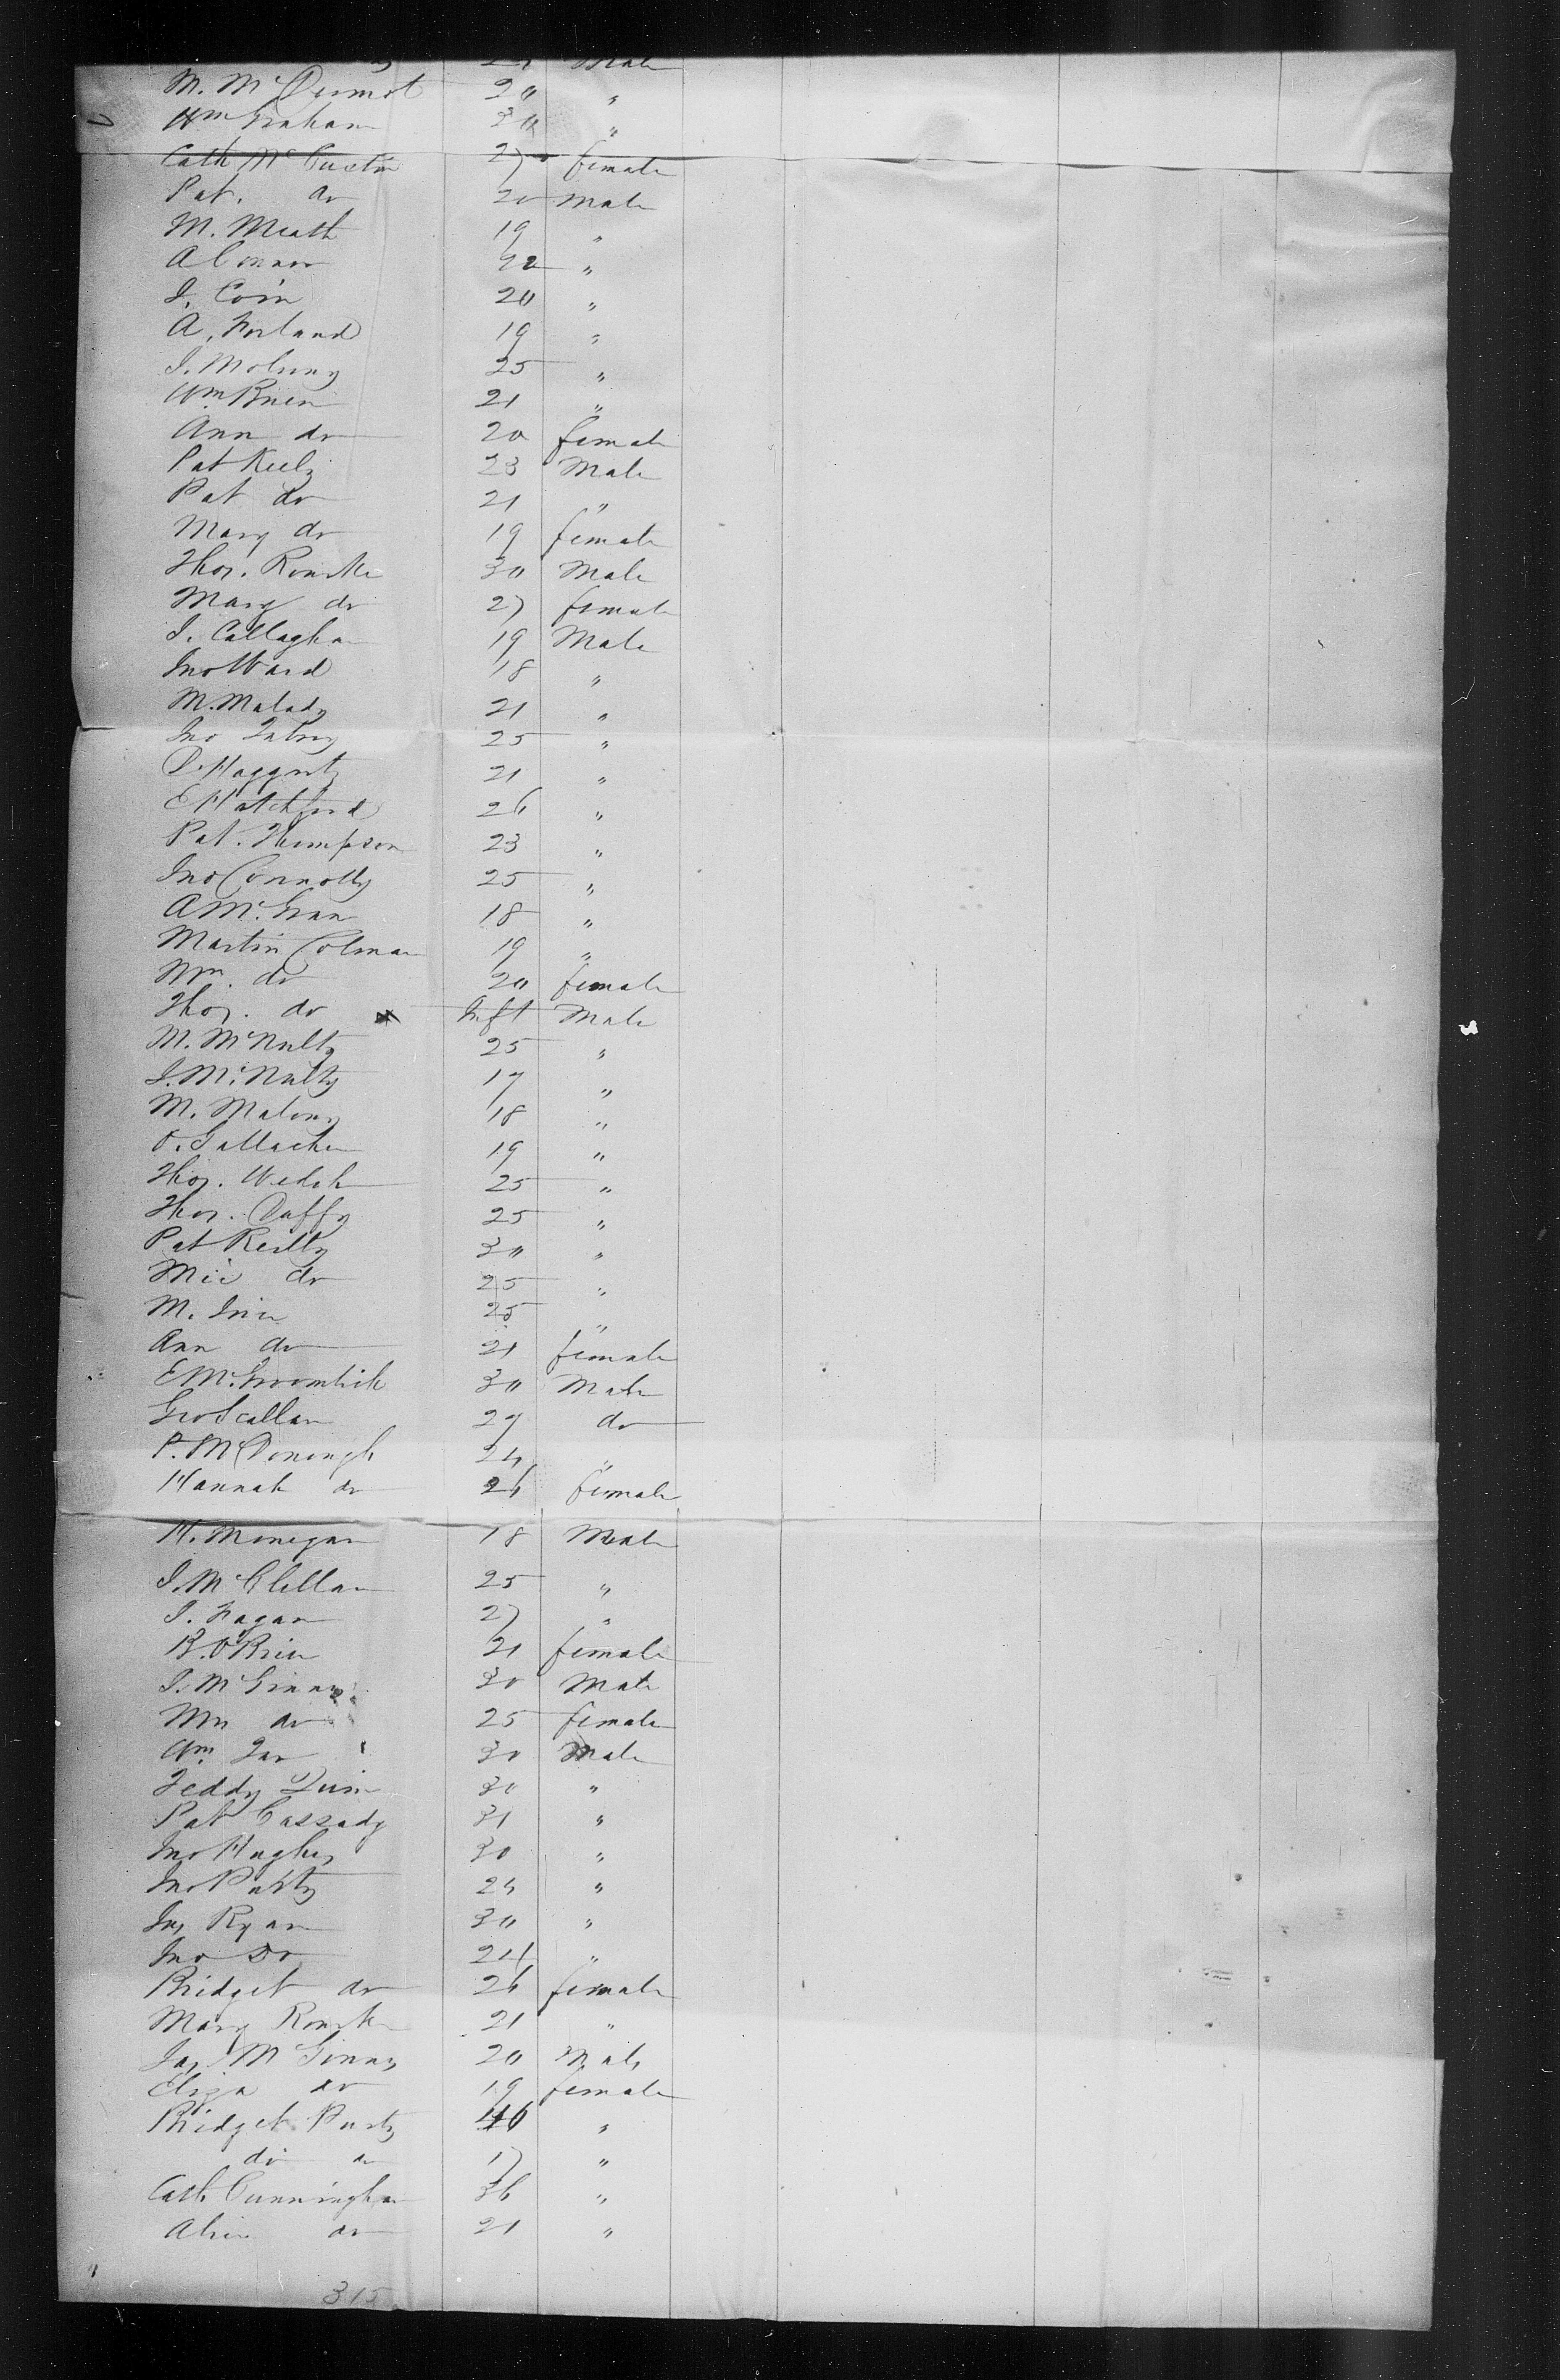 Male
M. McDermot 20 "
Wm Graham 30 "
Cath McCustin 27 female
Pat. do 20 Male
M. Meath 19 "
A Connor 42 "
J. Coin 20 "
A. Forland 19 "
J. Molony 25 "
Wm Brien 21 "
Ann do 20 female
Pat Keely 23 Male
Pat do 21 "
Mary do 19 female
Thos. Rourke 30 Male
Mary do 27 female
J. Callaghan 19 Male
Jno Ward 18 "
M. Malady 21 "
Jno 25 "
D. Haggerty 21 "
E Hatchford 26 "
Pat. Thompson 23 "
Jno Connolly 25 "
A McGran 18 "
Martin Colman 19 "
Mrs. do 20 female
Thos. do Inft Male
M. McNulty 25 "
J. McNulty 17 "
M. Malony 18 "
O. Gallacher 19 "
Thos. Welsh 25 "
Thos. Duffy 25 "
Pat Reilly 30 "
Mic do 25 "
M. 25 "
Ann do 21 female
E McGoomlick 30 Male
Geo Scallan 27 do
P. McDonough 24 "
Hannah do 26 female
H. Monegan 18 Male
J. McClellan 25 "
J. Fagan 27 "
B. O'Brien 21 female
J. McGinny 30 Male
Mrs do 25 female
Wm 30 Male
Teddy Quin 30 "
Pat Cassady 31 "
Jno Hughes 30 "
Jno Party 24 "
Jas Ryan 30 "
Jno Do 24 "
Bridget do 26 female
Mary Rourke 21 "
Jas McGinny 20 Male
Eliza do 19 female
Bridget Party 40 "
do do 17 "
Cath Cunningham 36 "
Alice do 21 "
315